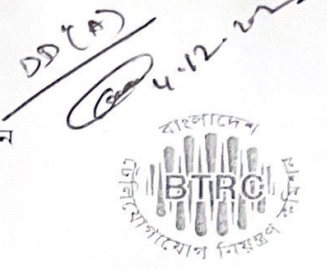 DD (A)
4.12.22
ন
বাংলাদেশ
BTRC
টেলিযোগাযোগ নিয়ন্ত্রণ